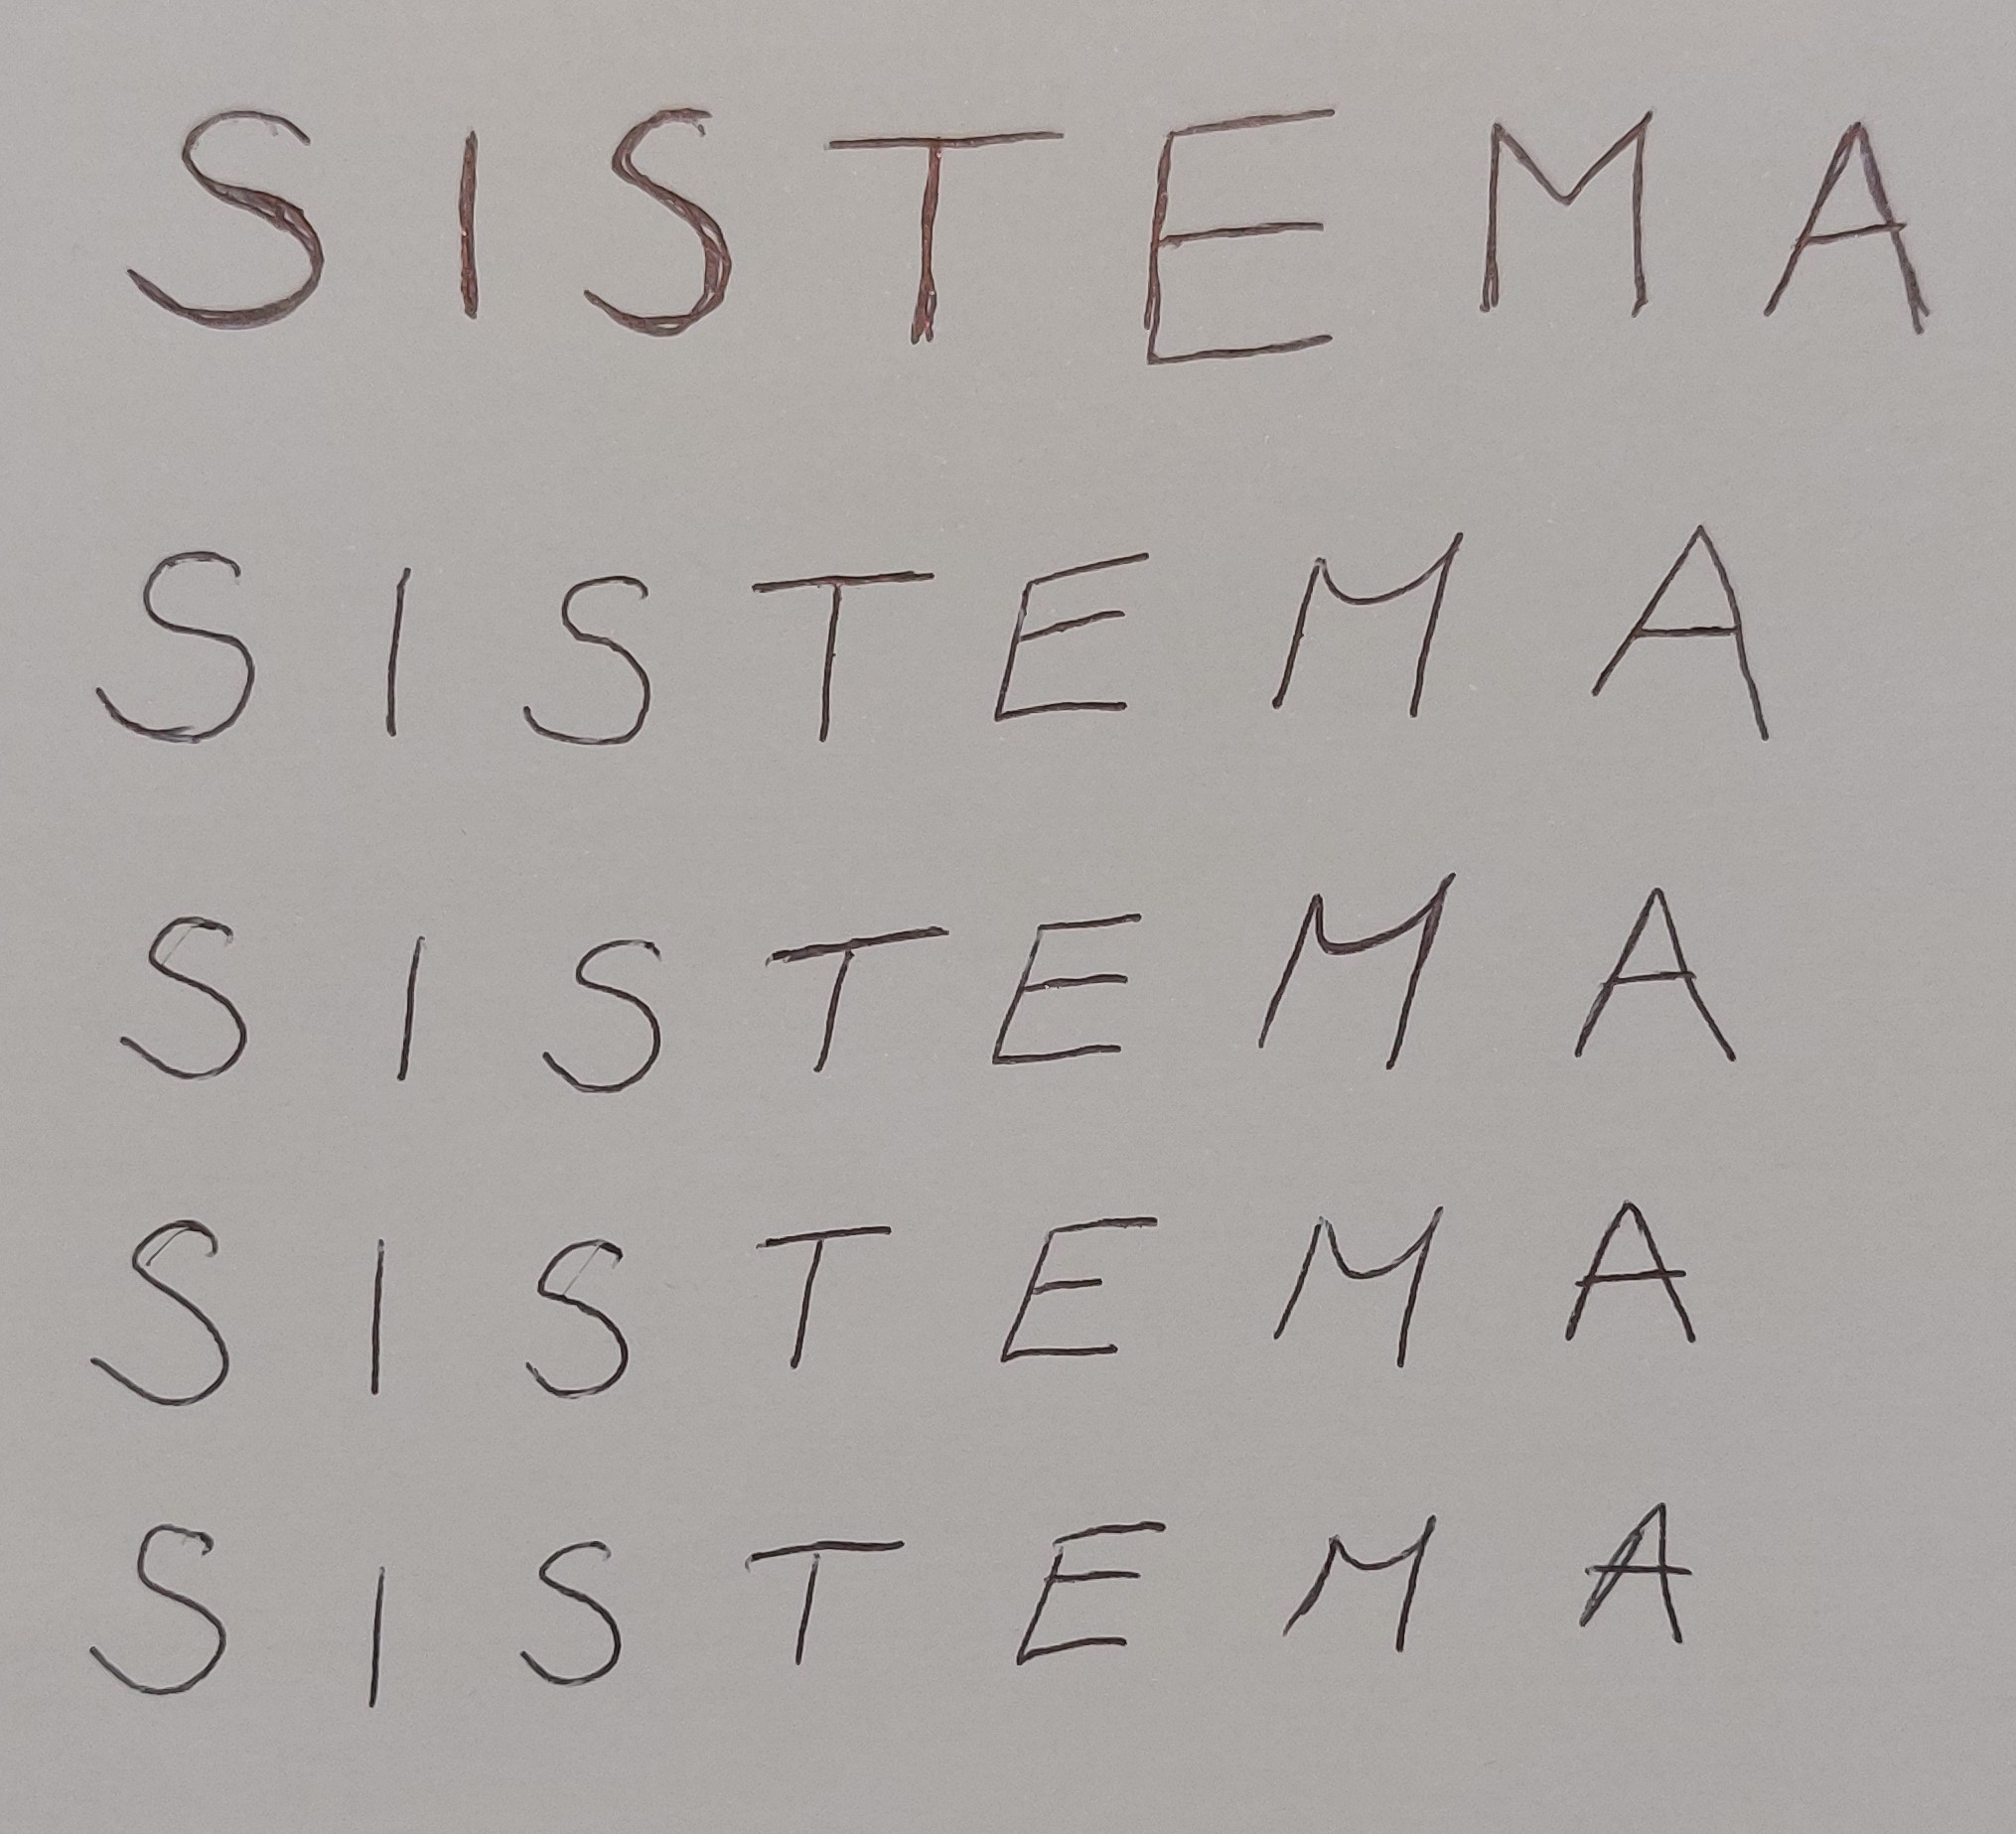 SISTEMA
SISTEMA
SISTEMA
SISTEMA
SISTEMA